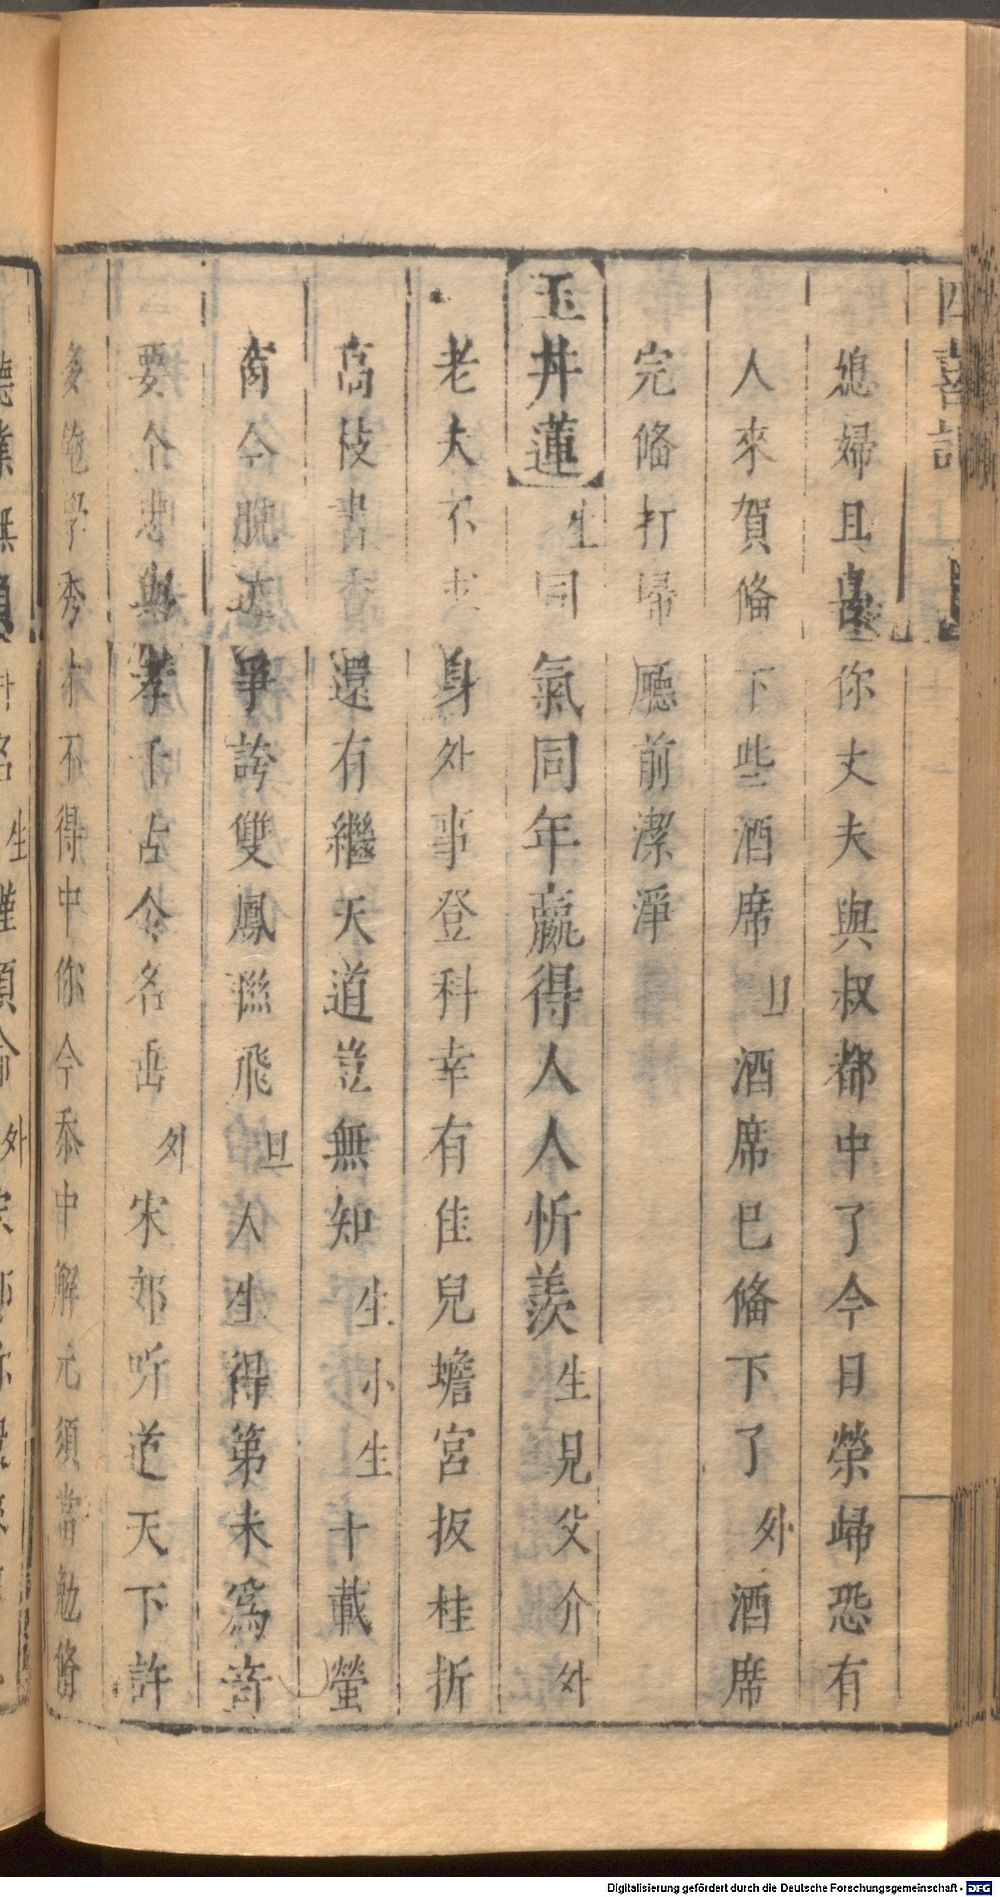 四喜記
媳婦且喜你丈夫與叔都中了今日榮歸恐有
人來賀俻下些酒席旦酒席已俻下了外酒席
完俻打掃廳前潔淨
玉井蓮生同氣同年羸得人人忻羨生見父介外
老夫不出身外事登科幸有佳兒蟾宮扳桂折
高枝書香還有繼天道豈無知生小生十載螢
窗今脫迹爭誇雙鳳聮飛旦人生得第未爲竒
要全忠與孝千古令名垂外宋郊听道天下許
多飽學秀才不得中你今忝中解元須當勉俻
Digitalisierung gefördert durch die Deutsche Forschungsgemeinschaft - DFG